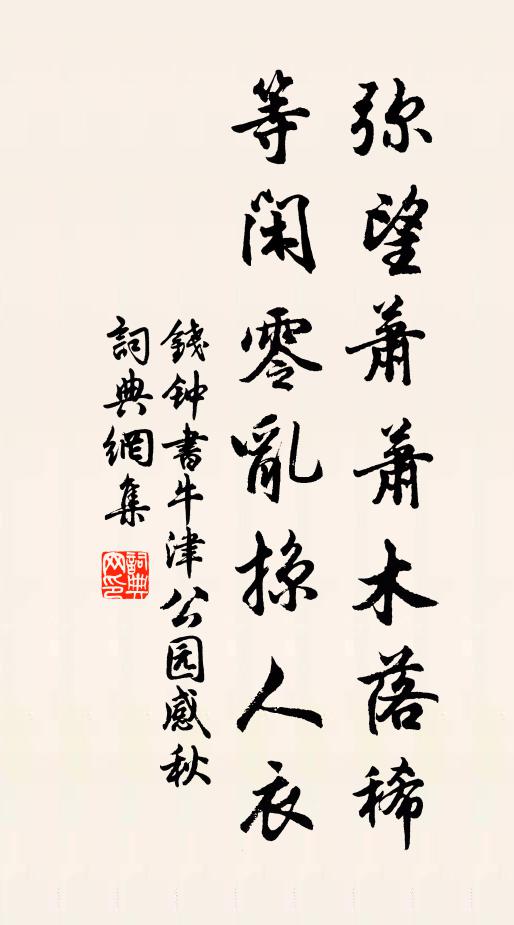 弥望萧萧木落稀
等闲零亂掠人衣
錢钟書牛津公园感秋
詞典網集
詞典网印